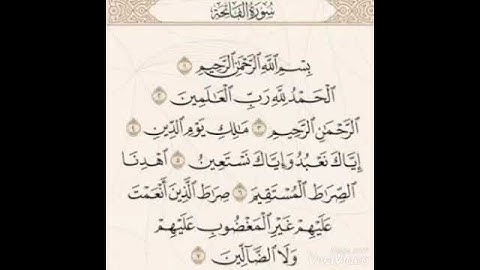 سُورَةُ الفَاتِحَةِ
بِسْمِ ٱللَّهِ ٱلرَّحْمَٰنِ ٱلرَّحِيمِ ١
ٱلْحَمْدُ لِلَّهِ رَبِّ ٱلْعَٰلَمِينَ ٢
ٱلرَّحْمَٰنِ ٱلرَّحِيمِ ٣ مَٰلِكِ يَوْمِ ٱلدِّينِ ٤
إِيَّاكَ نَعْبُدُ وَإِيَّاكَ نَسْتَعِينُ ٥ ٱهْدِنَا
ٱلصِّرَٰطَ ٱلْمُسْتَقِيمَ ٦ صِرَٰطَ ٱلَّذِينَ أَنْعَمْتَ
عَلَيْهِمْ غَيْرِ ٱلْمَغْضُوبِ عَلَيْهِمْ
وَلَا ٱلضَّآلِّينَ ٧
VivaVideo